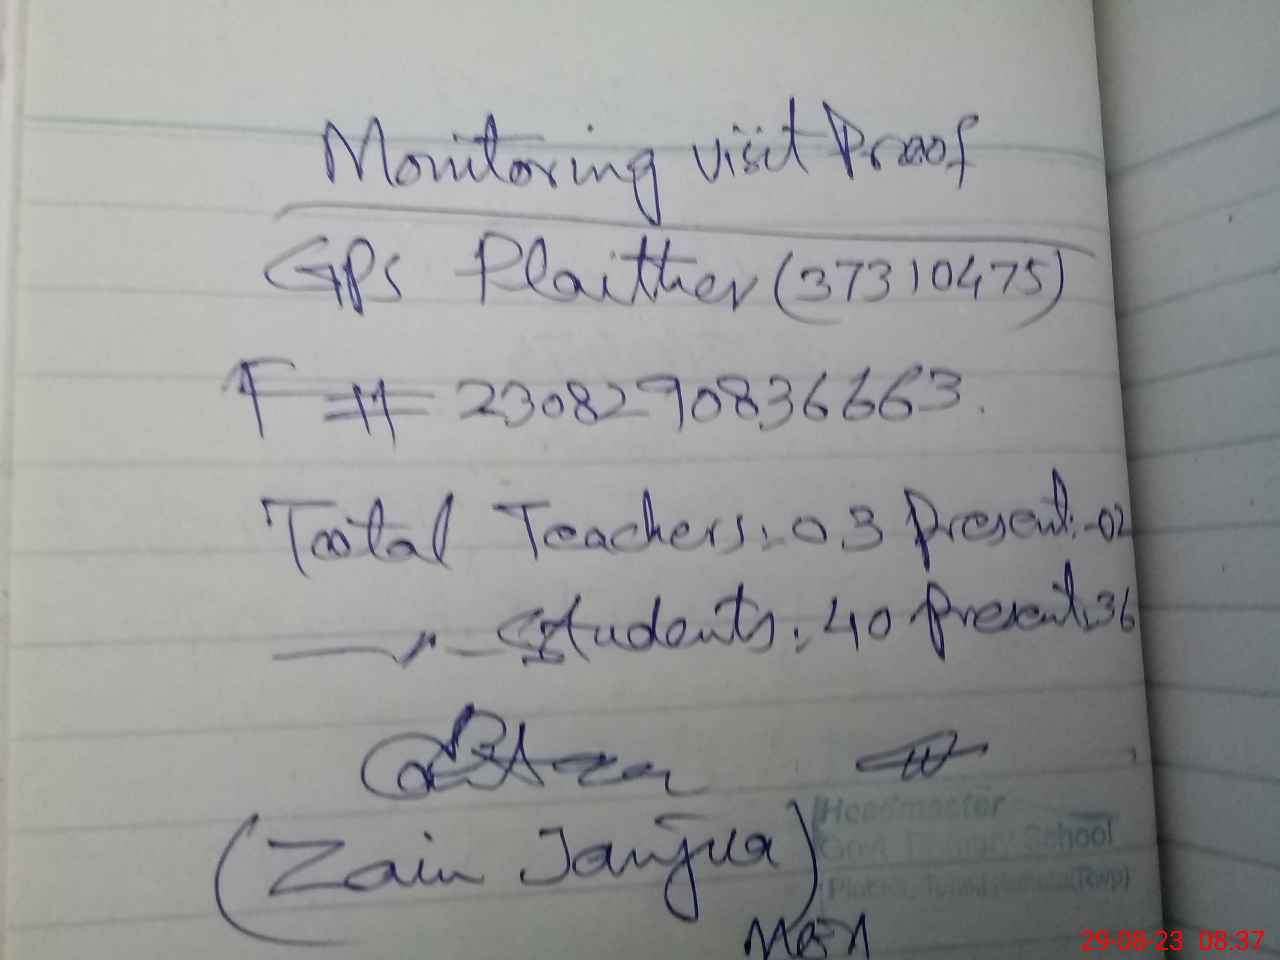 Monitoring visit Proof
GPS Plaither (37310475)
F # 2308290836663.
Tootal Teachers: 03 Present:-02
—〃— Students: 40 Present:36
(Zain Janjua)
MEA
Headmaster
Govt Primary School
(Rwp)
29-08-23 08:37